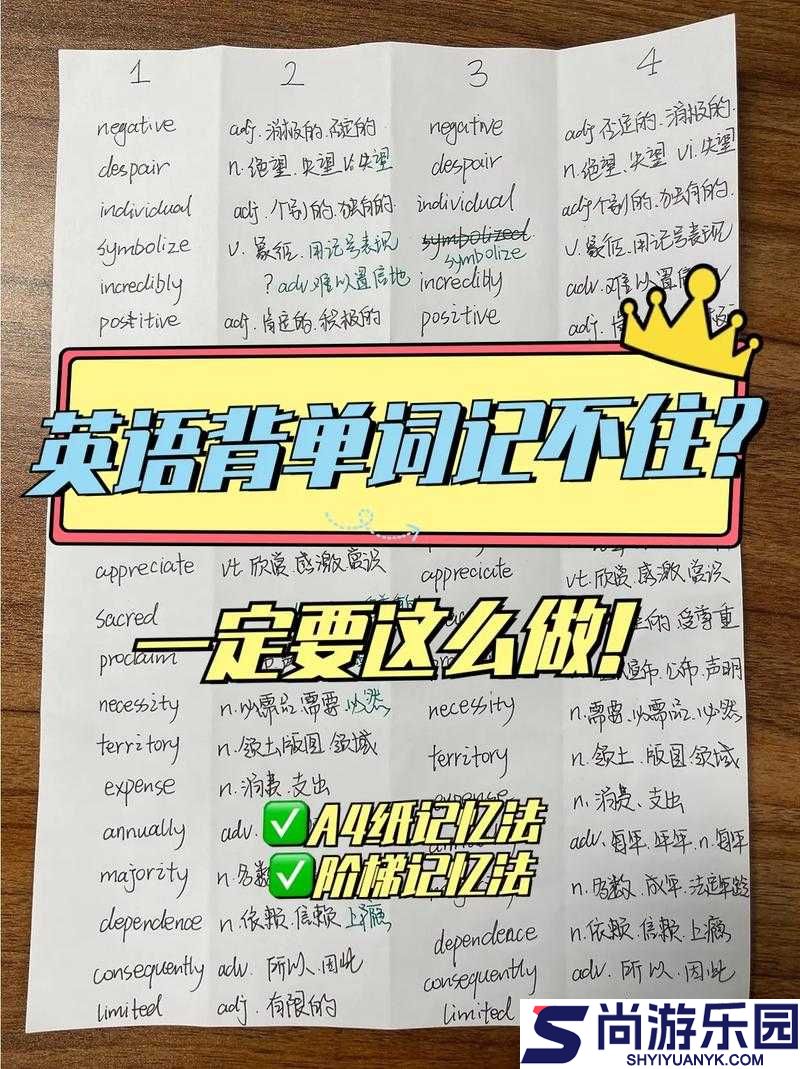 1 2 3 4
negative adj.消极的.否定的 negative adj 否定的.消极的.
despair n.绝望.失望 vi.失望 despair n.绝望.失望 vi.失望
individual adj.个别的.独有的. individual adj个别的.独有的.
symbolize v.象征.用记号表现 symbolized symbolize v.象征.用记号表现
incredibly ?adv.难以置信地 incredibly adv.难以置信
positive adj.肯定的.积极的 positive adj.肯
英语背单词记不住?
appreciate vt.欣赏.感激.赏识 appreciate vt.欣赏.感激.赏识
sacred 的.受尊重
一定要这么做!
proclaim 宣布.公布.声明
necessity n.必需品.需要.必然 necessity n.需要.必需品.必然
territory n.领土.版图.领域 territory n.领土.版图.领域
expense n.消费.支出 expense n.消费.支出
annually adv. adv.每年.年年.n.每年
✅A4纸记忆法
majority n.多数 n.多数.成年.法定年龄
✅阶梯记忆法
dependence n.依赖.信赖.上瘾 dependence n.依赖.信赖.上瘾
consequently adv.所以.因此 consequently adv.所以.因此
limited adj.有限的 limited
尚游乐园
SHYIYUANYK.COM